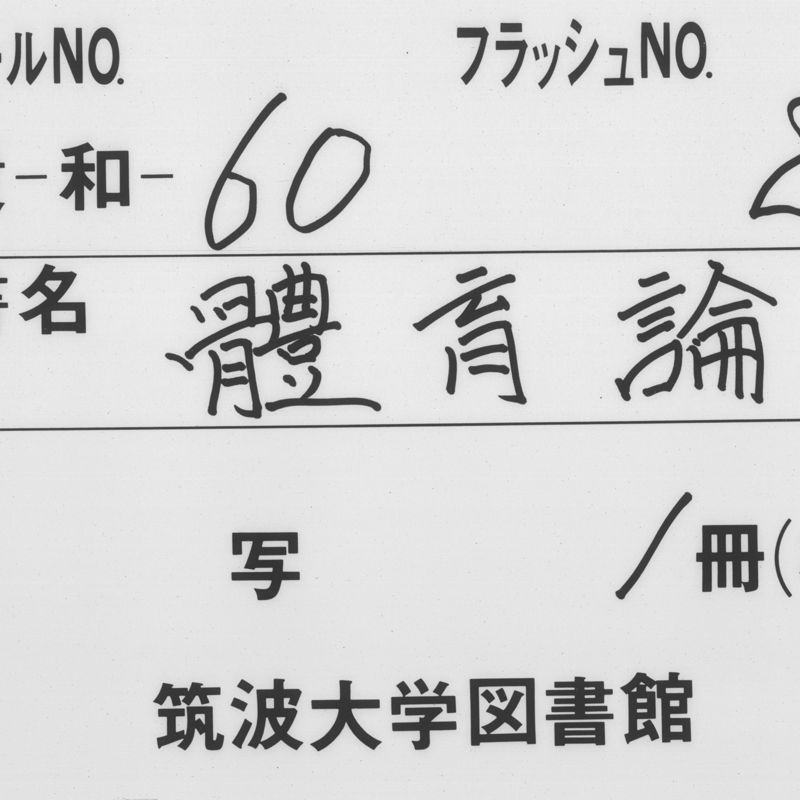 ルNO. フラッシュNO.
-和- 60
書名 體育論
写 1冊(
筑波大学図書館